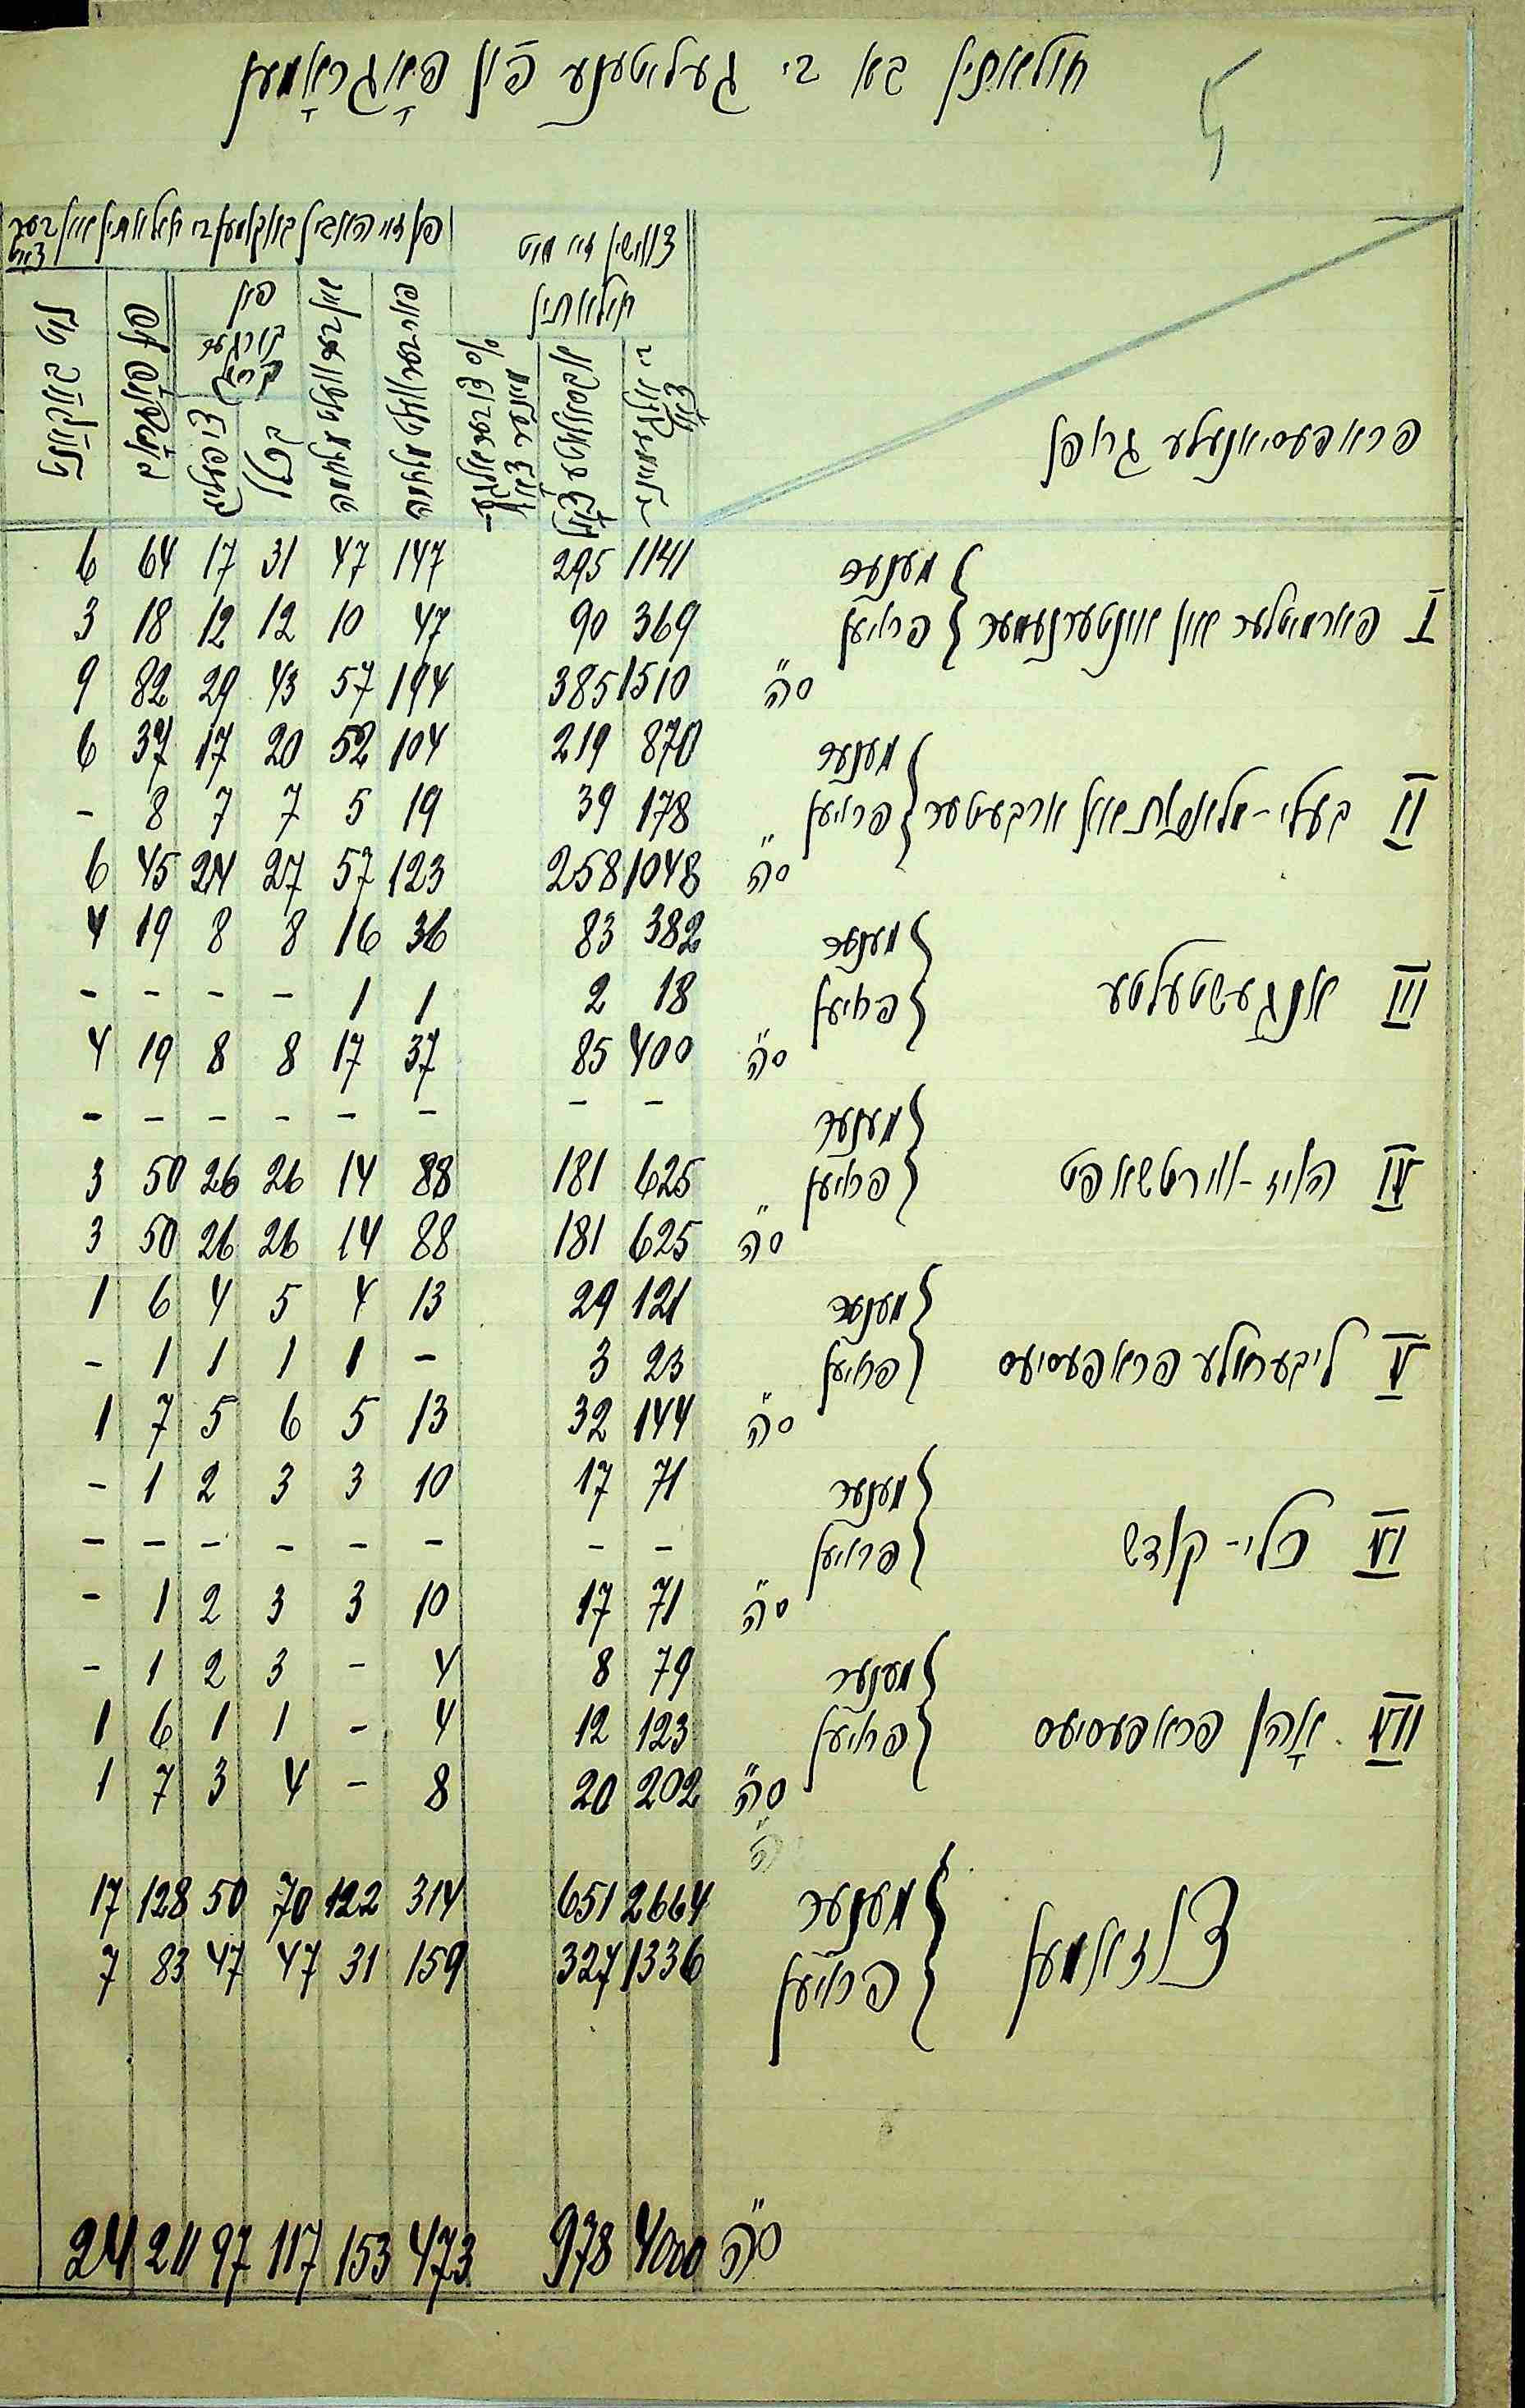 חולאתין בא די געליטענע פון פאָגראָמען
5
פראפעסיאנעלע גרופן
צווישן זיי מיט
חולאתין
פון זיי האבן באקומען די חולאתין אין דער צייט
%
פון
I פארמיטלער און אונטערנעמער { מענער 1141 295 147 47 31 17 64 6
פרויען 369 90 47 10 12 12 18 3
ס"ה 1510 385 194 57 43 29 82 9
II בעלי-מלאכות און ארבעטער { מענער 870 219 104 52 20 17 37 6
פרויען 178 39 19 5 7 7 8 -
ס"ה 1048 258 123 57 27 24 45 6
III אנגעשטעלטע { מענער 382 83 36 16 8 8 19 4
פרויען 18 2 1 1 - - - -
ס"ה 400 85 37 17 8 8 19 4
IV הויז-ווירטשאפט { מענער - - - - - - - -
פרויען 625 181 88 14 26 26 50 3
ס"ה 625 181 88 14 26 26 50 3
V ליבעראלע פראפעסיעס { מענער 121 29 13 4 5 4 6 1
פרויען 23 3 - 1 1 1 1 -
ס"ה 144 32 13 5 6 5 7 1
VI כלי-קודש { מענער 71 17 10 3 3 2 1 -
פרויען - - - - - - - -
ס"ה 71 17 10 3 3 2 1 -
VII אָהן פראפעסיעס { מענער 79 8 4 - 3 2 1 -
פרויען 123 12 4 - 1 1 6 1
ס"ה 202 20 8 - 4 3 7 1
צוזאמען { מענער 2664 651 314 122 70 50 128 17
פרויען 1336 327 159 31 47 47 83 7
ס"ה 4000 978 473 153 117 97 211 24